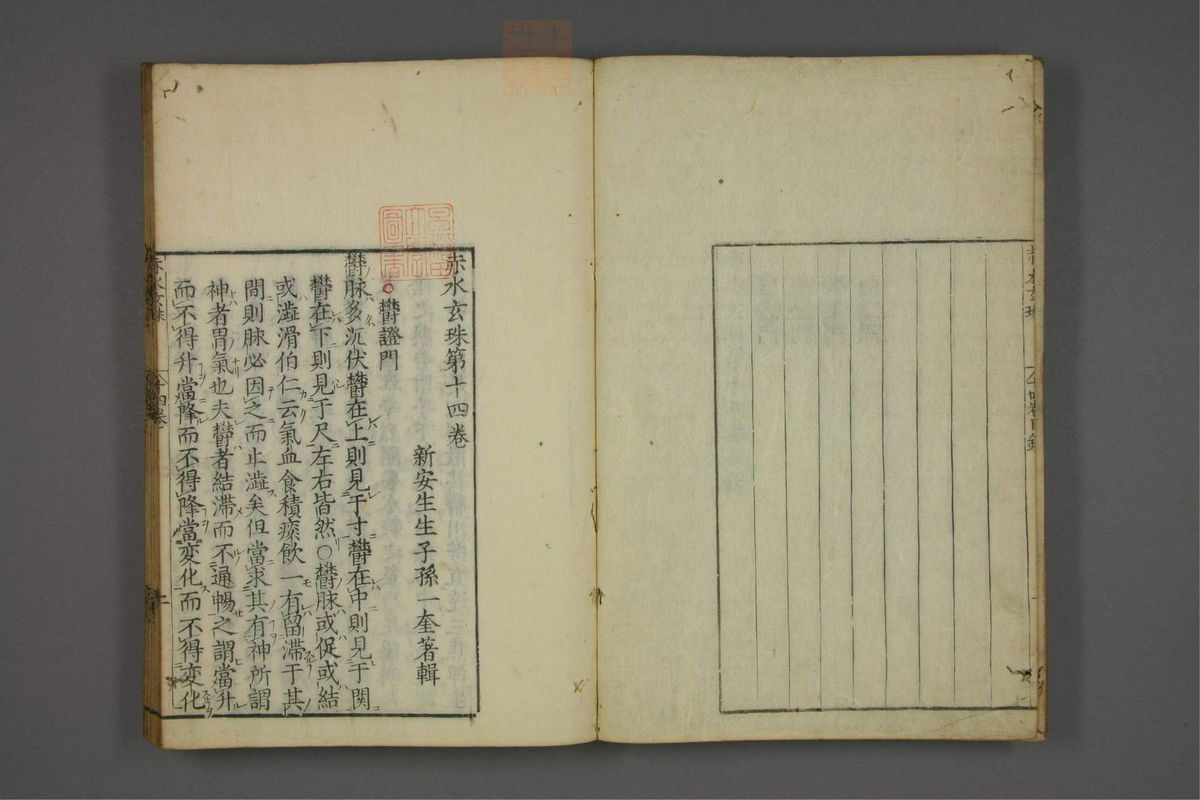 赤水玄珠第十四巻
新安生生子孫一奎著輯
欝證門
欝脉多沉伏欝在上則見于寸欝在中則見于関
欝在下則見于尺左右皆然○欝脉或促或結
或澁滑伯仁云氣血食積痰飲一有留滞于其
間則脉必因之而止澁矣但當求其有神所謂
神者胃氣也夫欝者結滞而不通暢之謂當升
而不得升當降而不得降當変化而不得変化
赤水玄珠
十四巻
一